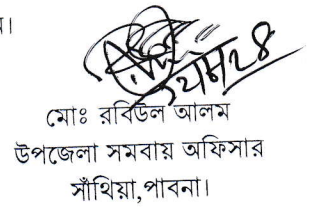 ন।
মোঃ রবিউল আলম
উপজেলা সমবায় অফিসার
সাঁথিয়া,পাবনা।